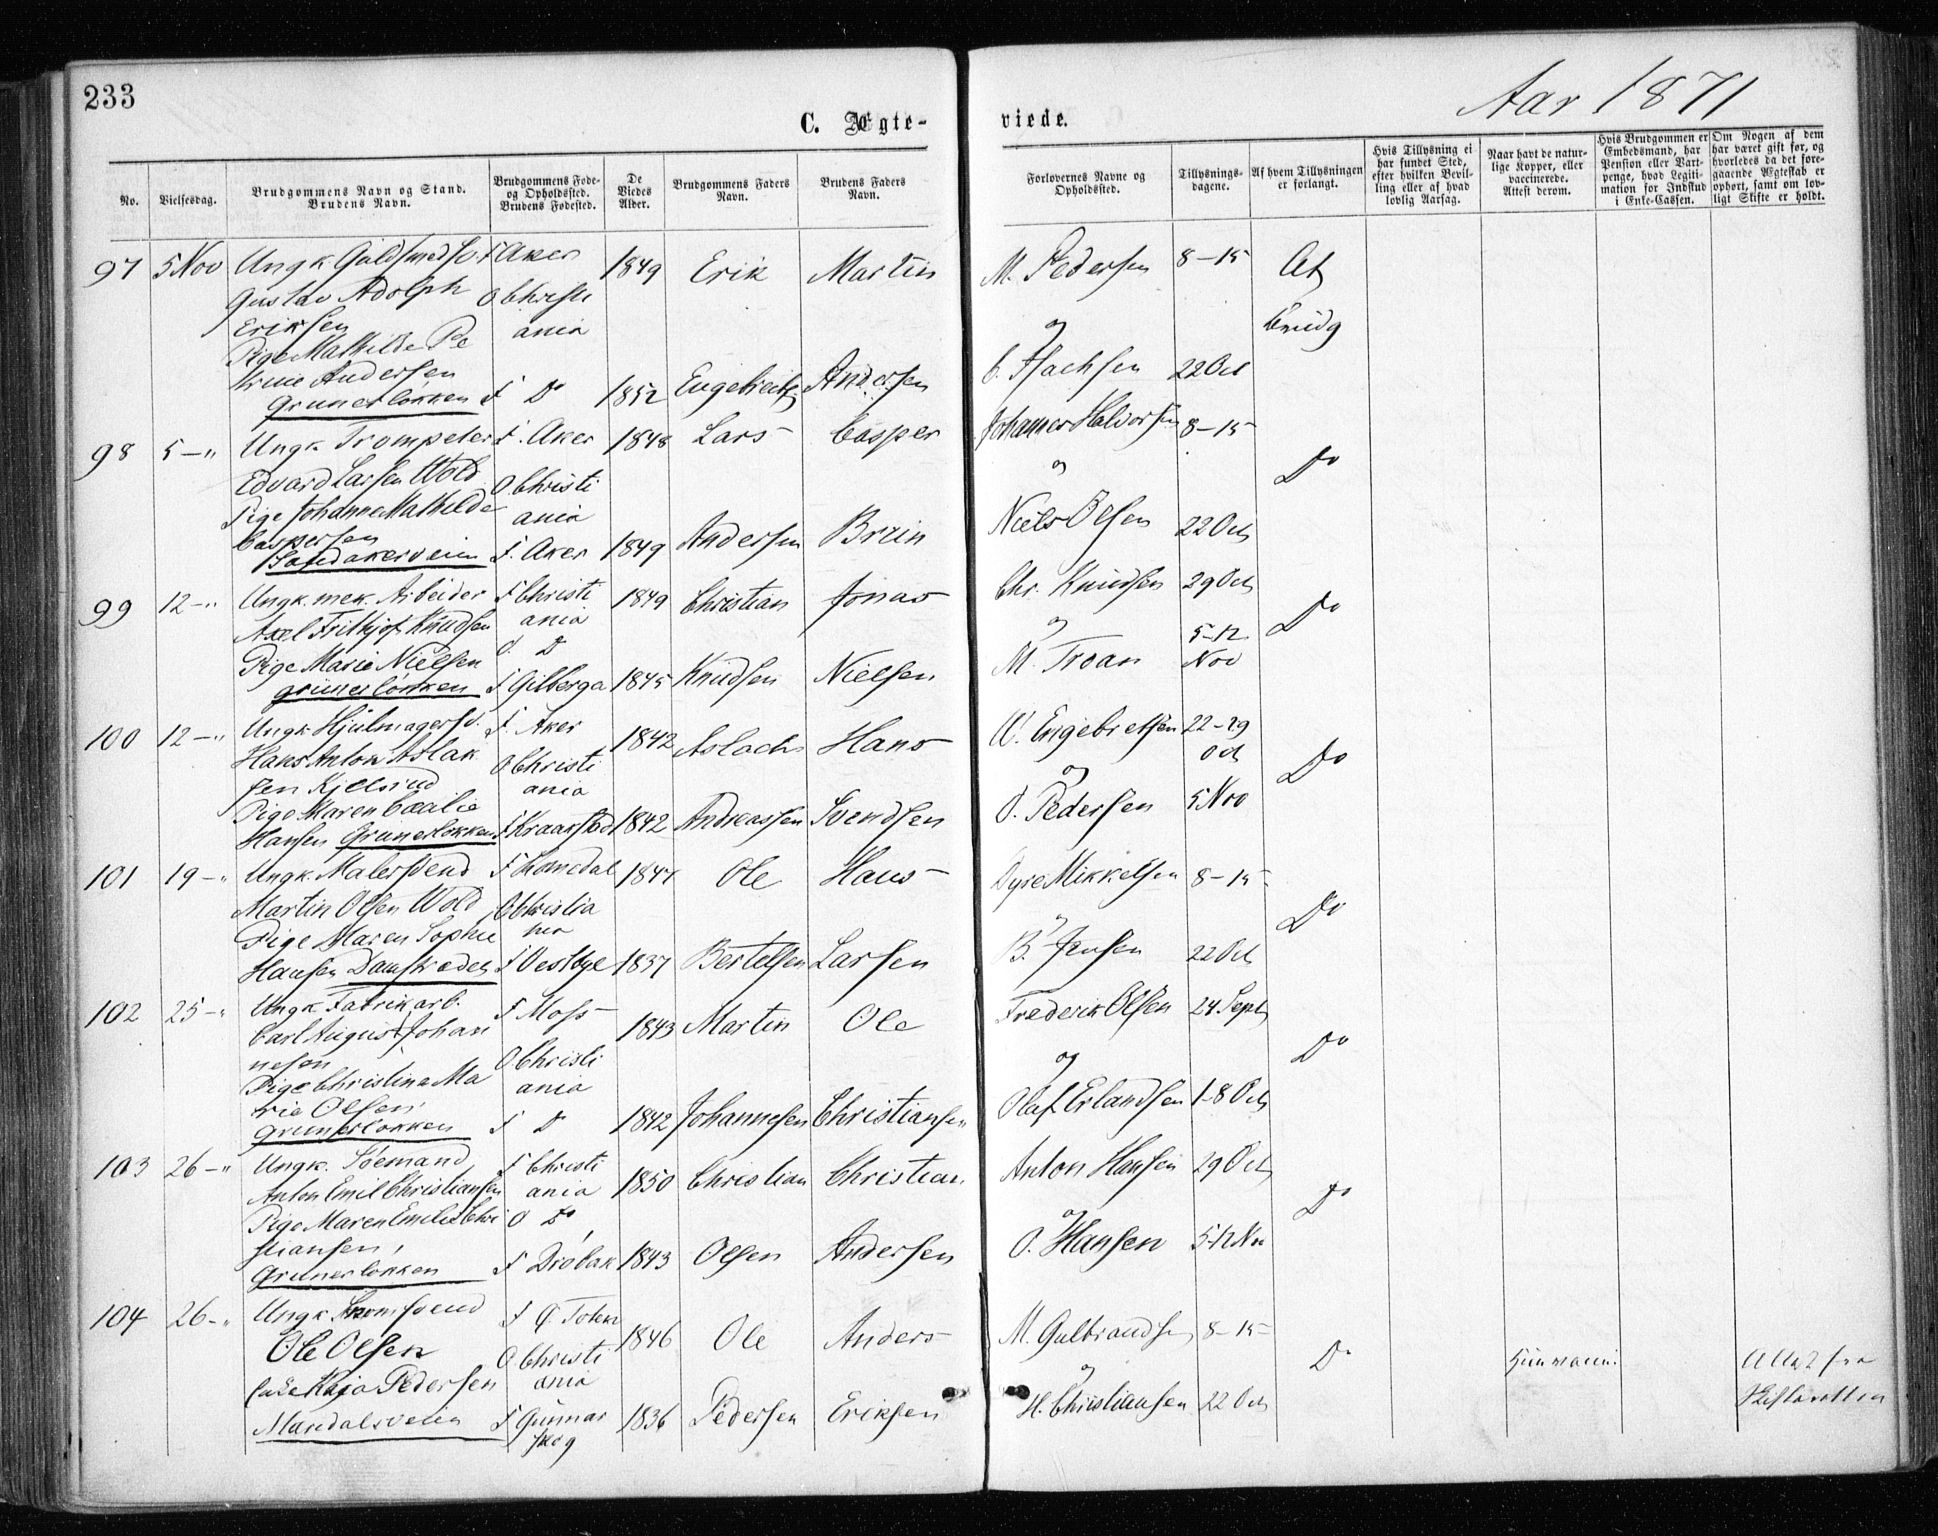 233
C. Ægte-
viede.
Aar 1871
No.
Vielsesdag.
Brudgommens Navn og Stand.
Brudens Navn.
Brudgommens Føde-
og Opholdssted.
Brudens Fødested.
De
Viedes
Alder.
Brudgommens Faders
Navn.
Brudens Faders
Navn.
Forlovernes Navne og
Opholdssted.
Tillysnings-
dagene.
Af hvem Tillysningen
er forlangt.
Hvis Tillysning ei
har fundet Sted,
efter hvilken Bevil-
ling eller af hvad
lovlig Aarsag.
Naar havt de natur-
lige Kopper, eller
vaccinerede.
Attest derom.
Hvis Brudgommen er
Embedsmand, har
Pension eller Vart-
penge, hvad Legiti-
mation for Indskud
i Enke-Cassen.
Om Nogen af dem
har været gift før, og
hvorledes da det fore-
gaaende Ægteskab er
ophørt, samt om lov-
ligt Skifte er holdt.
97 5 Nov Ungk. Guldsmedsv. F Aker 1849 Erik Martin M. Pedersen 8-15 Af
Gustav Adolph O Christi
Eriksen ania og Brudg
Pige Mathilde Pe
trine Andersen F Do 1852 Engebrets. Andersen C. Isachsen 22 Oct
Grünerløkken
98 5 -"- Ungk. Trompeter F. Aker 1848 Lars Casper Johannes Halvorsen 8-15 Do
Edvard Larsen Wold O Christi og
Pige Johanne Mathilde ania
Caspersen F. Aker 1849 Andersen Bruun Niels Olsen 22 Oct
Sandakerveien
99 12 -"- Ungk. mek. Arbeider F Christi 1849 Christian Jonas Chr. Knudsen 29 Oct Do
Axel Frithjof Knudsen ania og 5-12
O. Do Nov
Pige Marie Nielsen F Gilberga 1845 Knudsen Nielsen M. Troan
Grünerløkken
100 12 -"- Ungk. Hjulmagersv. F. Aker 1842 Aslach Hans W. Engebretsen 22-29 Do
Hans Anton Aslak O Christi og Oct
sen Kjelsrud ania
Pige Maren Cecilie
Hansen Grunerløkken F Kraakstad 1842 Andreassen Svendsen O. Pedersen 5 Nov
101 19 -"- Ungk. Malersvend F Romedal 1844 Ole Hans Dyre Mikkelsen 8-15 Do
Martin Olsen Wold O Christia
Pige Maren Sophie nia
Hansen Damstrædet F Vestbye 1837 Bertelsen Larsen B. Jensen 22 Oct
102 25 -"- Ungk. Fabrikarb. F Moss 1843 Martin Ole Frederik Olsen 24 Sept Do
Carl August Johan
nesen O Christi og
Pige Christina Ma ania
rie Olsen F Do 1842 Johannesen Christiansen Olaf Erlandsen 1-8 Oct
Grünerløkken
103 26 -"- Ungk. Sømand F Christi 1850 Christian Christian Anton Hansen 29 Oct Do
Anton Emil Christiansen ania
Pige Maren Emilie Chri O Do og
stiansen,
Grünerløkken F Drøbak 1843 Olsen Andersen O. Hansen 5-12 Nov
104 26 -"- Ungk. svend F Ø. Toten 1846 Ole Anders M. Gulbrandsen 8-15 Do
Ole Olsen O Christi og Attest fra
Enke Kaja Pedersen ania Skifteretten
Maridalsveien F Gunnar 1836 Pedersen Eriksen H. Christiansen 22 Oct
skog